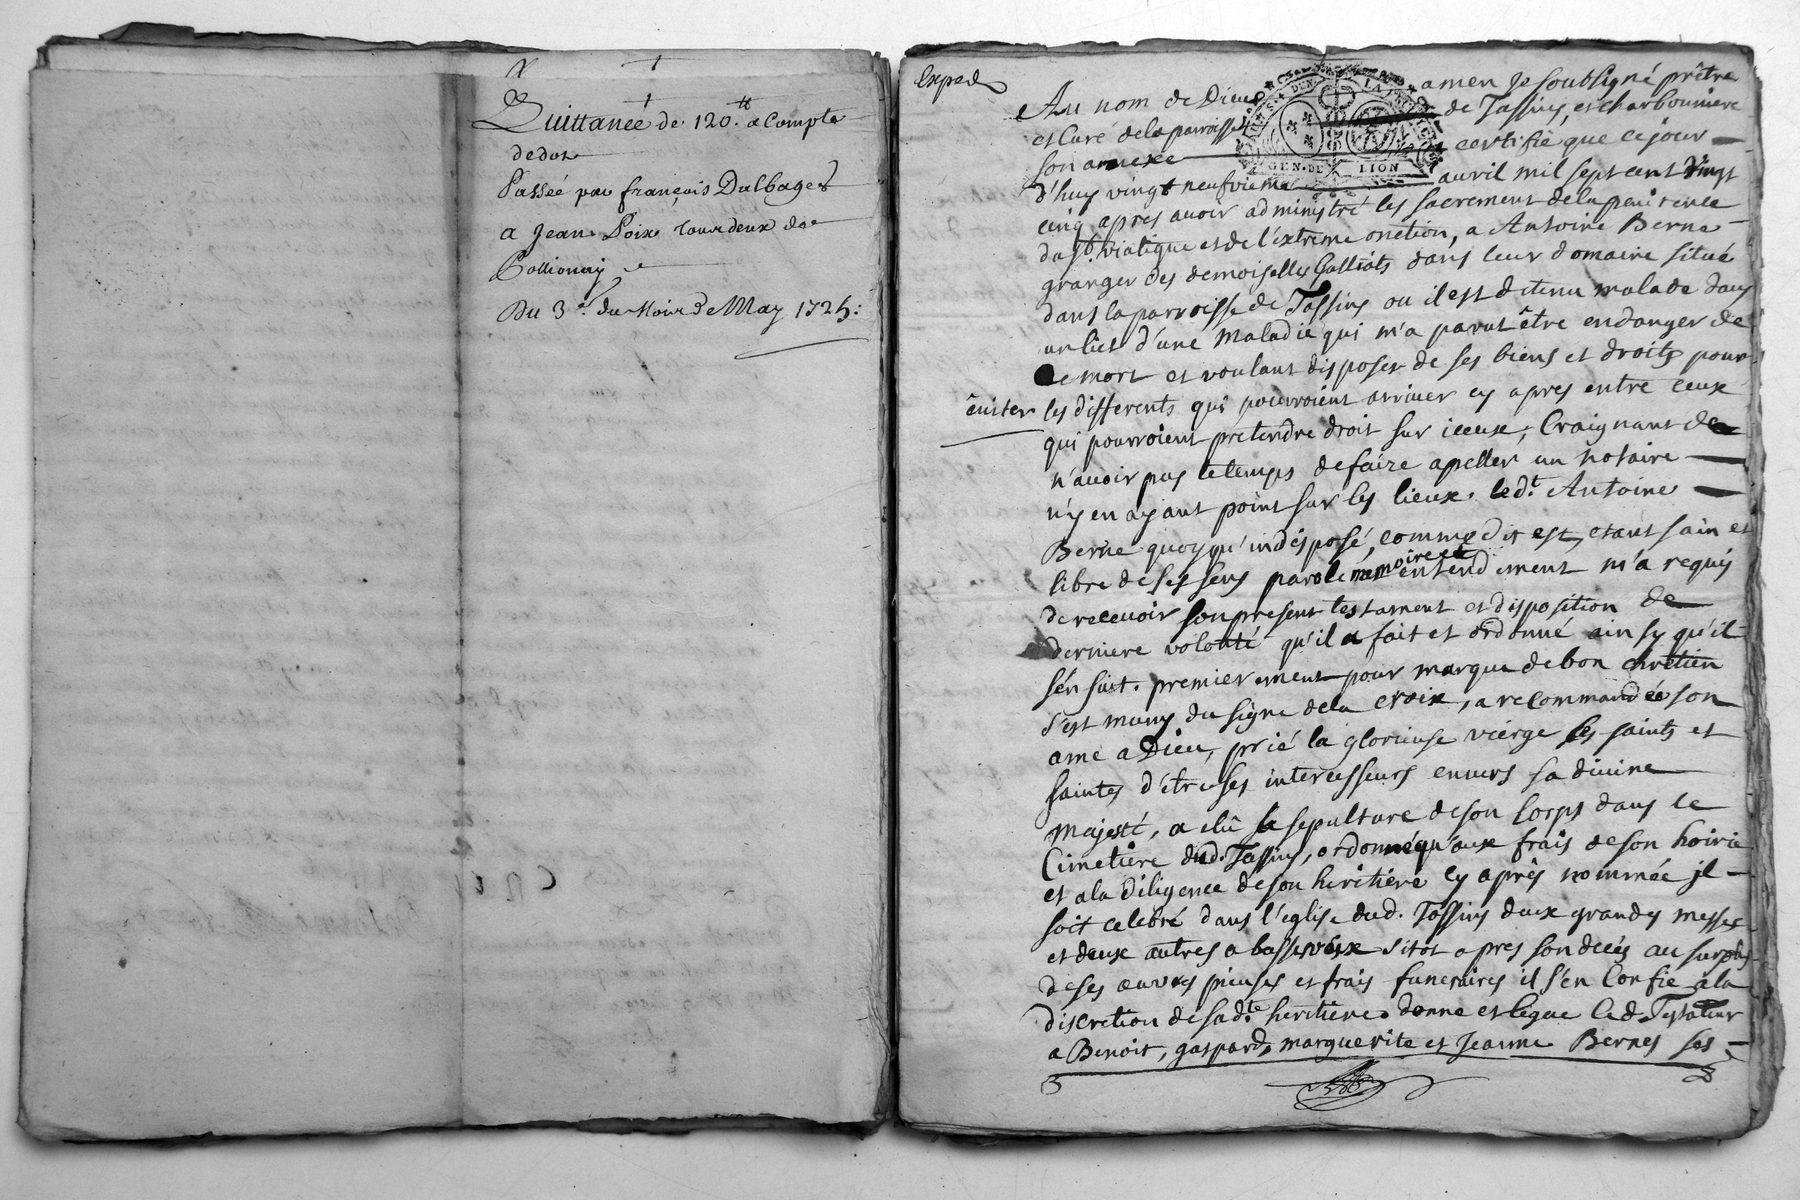 Quittance de 120.tt a Compte
de dot
Passée par françois Dalbages
a Jean Poix tous deux de
Pollionay
Du 3e. du Mois de May 1725:
Exped
GEN. DE LION
Au nom de Dieu amen Je soubsigné prêtre
et Curé de la parroisse de Tassins, et charbonniere
son annexe certifie que ce jour
d'huy vingt neufvieme avril mil sept cent vingt
cinq apres avoir administré les sacrement de la penitence
du st. viatique et de l'extreme onction, a Antoine Berne
granger des demoiselles Galliats dans leur domaine situé
dans la parroisse de Tassins ou il est detenu malade dans
un lict d'une maladie qui m'a parut être en danger de
de mort et voulant disposer de ses biens et droits pour
éuiter les differents qui pourroient arriuer cy apres entre ceux
qui pourroient pretendre droit sur iceux, Craignant de
n'auoir pas le temps de faire apeller un notaire
n'y en ayant point sur les lieux. led.t Antoine
Berne quoy qu'indisposé, comme dit est, etant sain et
libre de ses sens parole memoire et entendement m'a requis
de receuoir son present testament et disposition de
derniere volonté qu'il a fait et ordonné ainsy qu'il
s'en suit. premierement pour marque de bon chretien
s'est muny du signe de la croix, a recommandée son
ame a Dieu, prié la glorieuse vierge les saints et
saintes d'être ses intercesseurs enuers sa diuine
Majesté, a elû sa sepulture de son Corps dans le
Cimetière dud. Tassins, ordonné qu'aux frais de son hoirie
et a la diligence de son heritiere cy après nommée il
soit celebré dans l'eglise dud. Tassins deux grandes messes
et deux autres a basse voix sitot apres son decés au surplus
de ses œuvres pieuses et frais funeraires il s'en Confie a la
discretion de sad.te heritiere. donne et legue led. Testateur
a Benoit, gaspard, marguerite et Jeanne Bernes ses